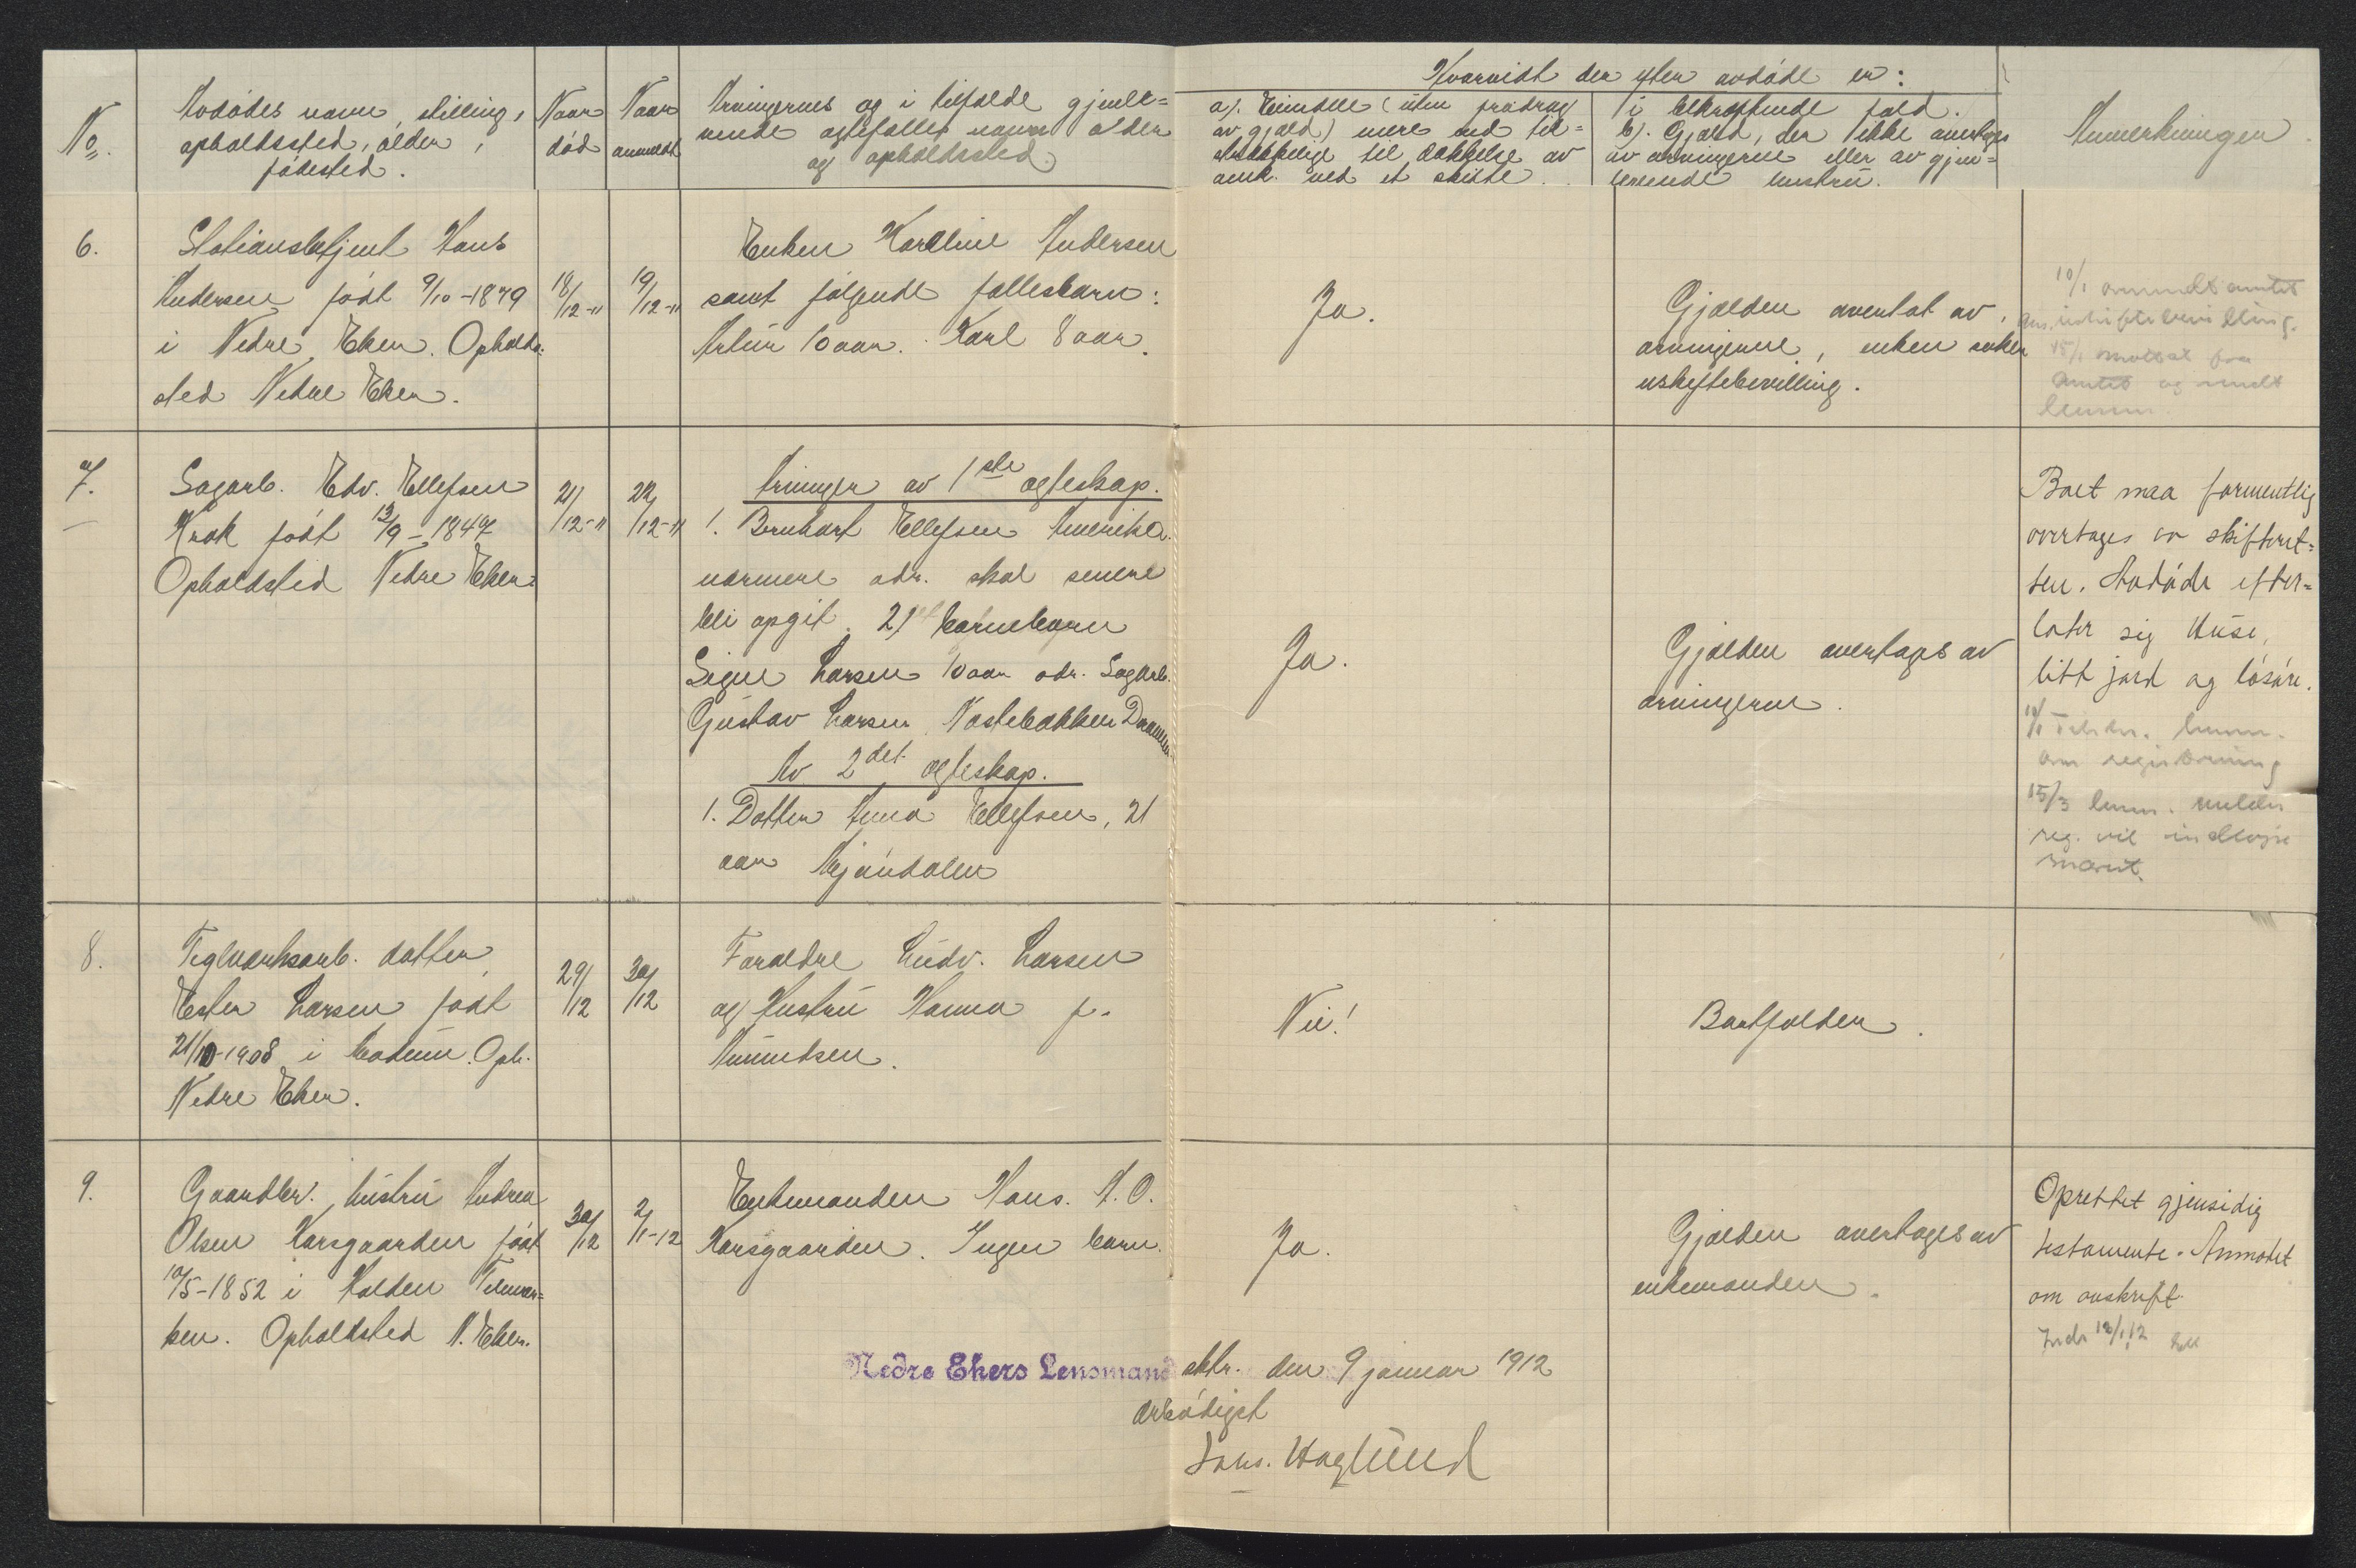 Hvorvidt der efter avdøde er:
No.
Avdødes navn, stilling,
opholdssted, alder,
fødested.
Naar
død
Naar
anmeldt
Arvingernes og i tilfælde gjenle-
vende ægtefælles navn alder
og opholdssted.
a). Eiendele (uten fradrag
av gjæld) mere end til-
strækkelige til dækkelse av
omk. ved et skifte.
i bekræftende fald.
b). Gjæld, der ikke overtages
av arvingerne eller av gjen-
levende hustru.
Anmerkninger.
6.
Stationsbetjent Hans
Andersen født 9/10-1879
i Nedre Eker. Opholds-
sted Nedre Eker.
18/12-11
19/12-11
Enken Karoline Andersen
samt følgende fællesbarn:
Artur 10 aar. Karl 8 aar.
Ja.
Gjælden overtat av
arvingerne, enken søker
uskiftebevilling.
10/1 anmeldt amtet
uskiftebevilling.
15/1 mottat fra
amtet og sendt
lensm.
7.
Sagarb. Edv. Ellefsen
Krok født 13/9-1847
Opholdsted Nedre Eker.
21/12-11
22/12-11
Arvinger av 1ste ægteskap.
1. Bernhart Ellefsen Amerika.
nærmere adr. skal senere
bli opgit. 2) barnebarn
Signe Larsen 10 aar adr. Sagarb.
Gustav Larsen, Tostebakken Drammen
Av 2det ægteskap.
1. Datter Anna Ellefsen, 21
aar Mjøndalen
Ja.
Gjælden overtages av
arvingerne.
Boet maa formentlig
overtages av skifteret-
ten. Avdøde efter-
later sig Huse,
litt jord og løsøre.
10/1 lensm.
om registrering
15/3 lensm. melder
reg. vil indløpe
snarest.
8.
Teglverksarb. datter
Ester Larsen født
21/10-1908 i Modum. Oph.
Nedre Eker.
29/12
30/12
Forældre Ludv. Larsen
og Hustru Hanna f.
Amundsen.
Nei!
Bortfalder.
9.
Gaardbr. hustru Andrea
Olsen Horsgaarden født
10/5-1852 i Holden Telemar-
ken. Opholdsted N. Eker.
30/12
2/1-12
Enkemanden Hans. A. O.
Horsgaarden. Ingen barn.
Ja.
Gjælden overtages av
enkemanden.
Oprettet gjensidig
testamente. Anmodet
om avskrift.
Inds 18/1 12
Nedre Ekers Lensmands
ktr. den 9 januar 1912
ærbødigst
Johs. Haglund